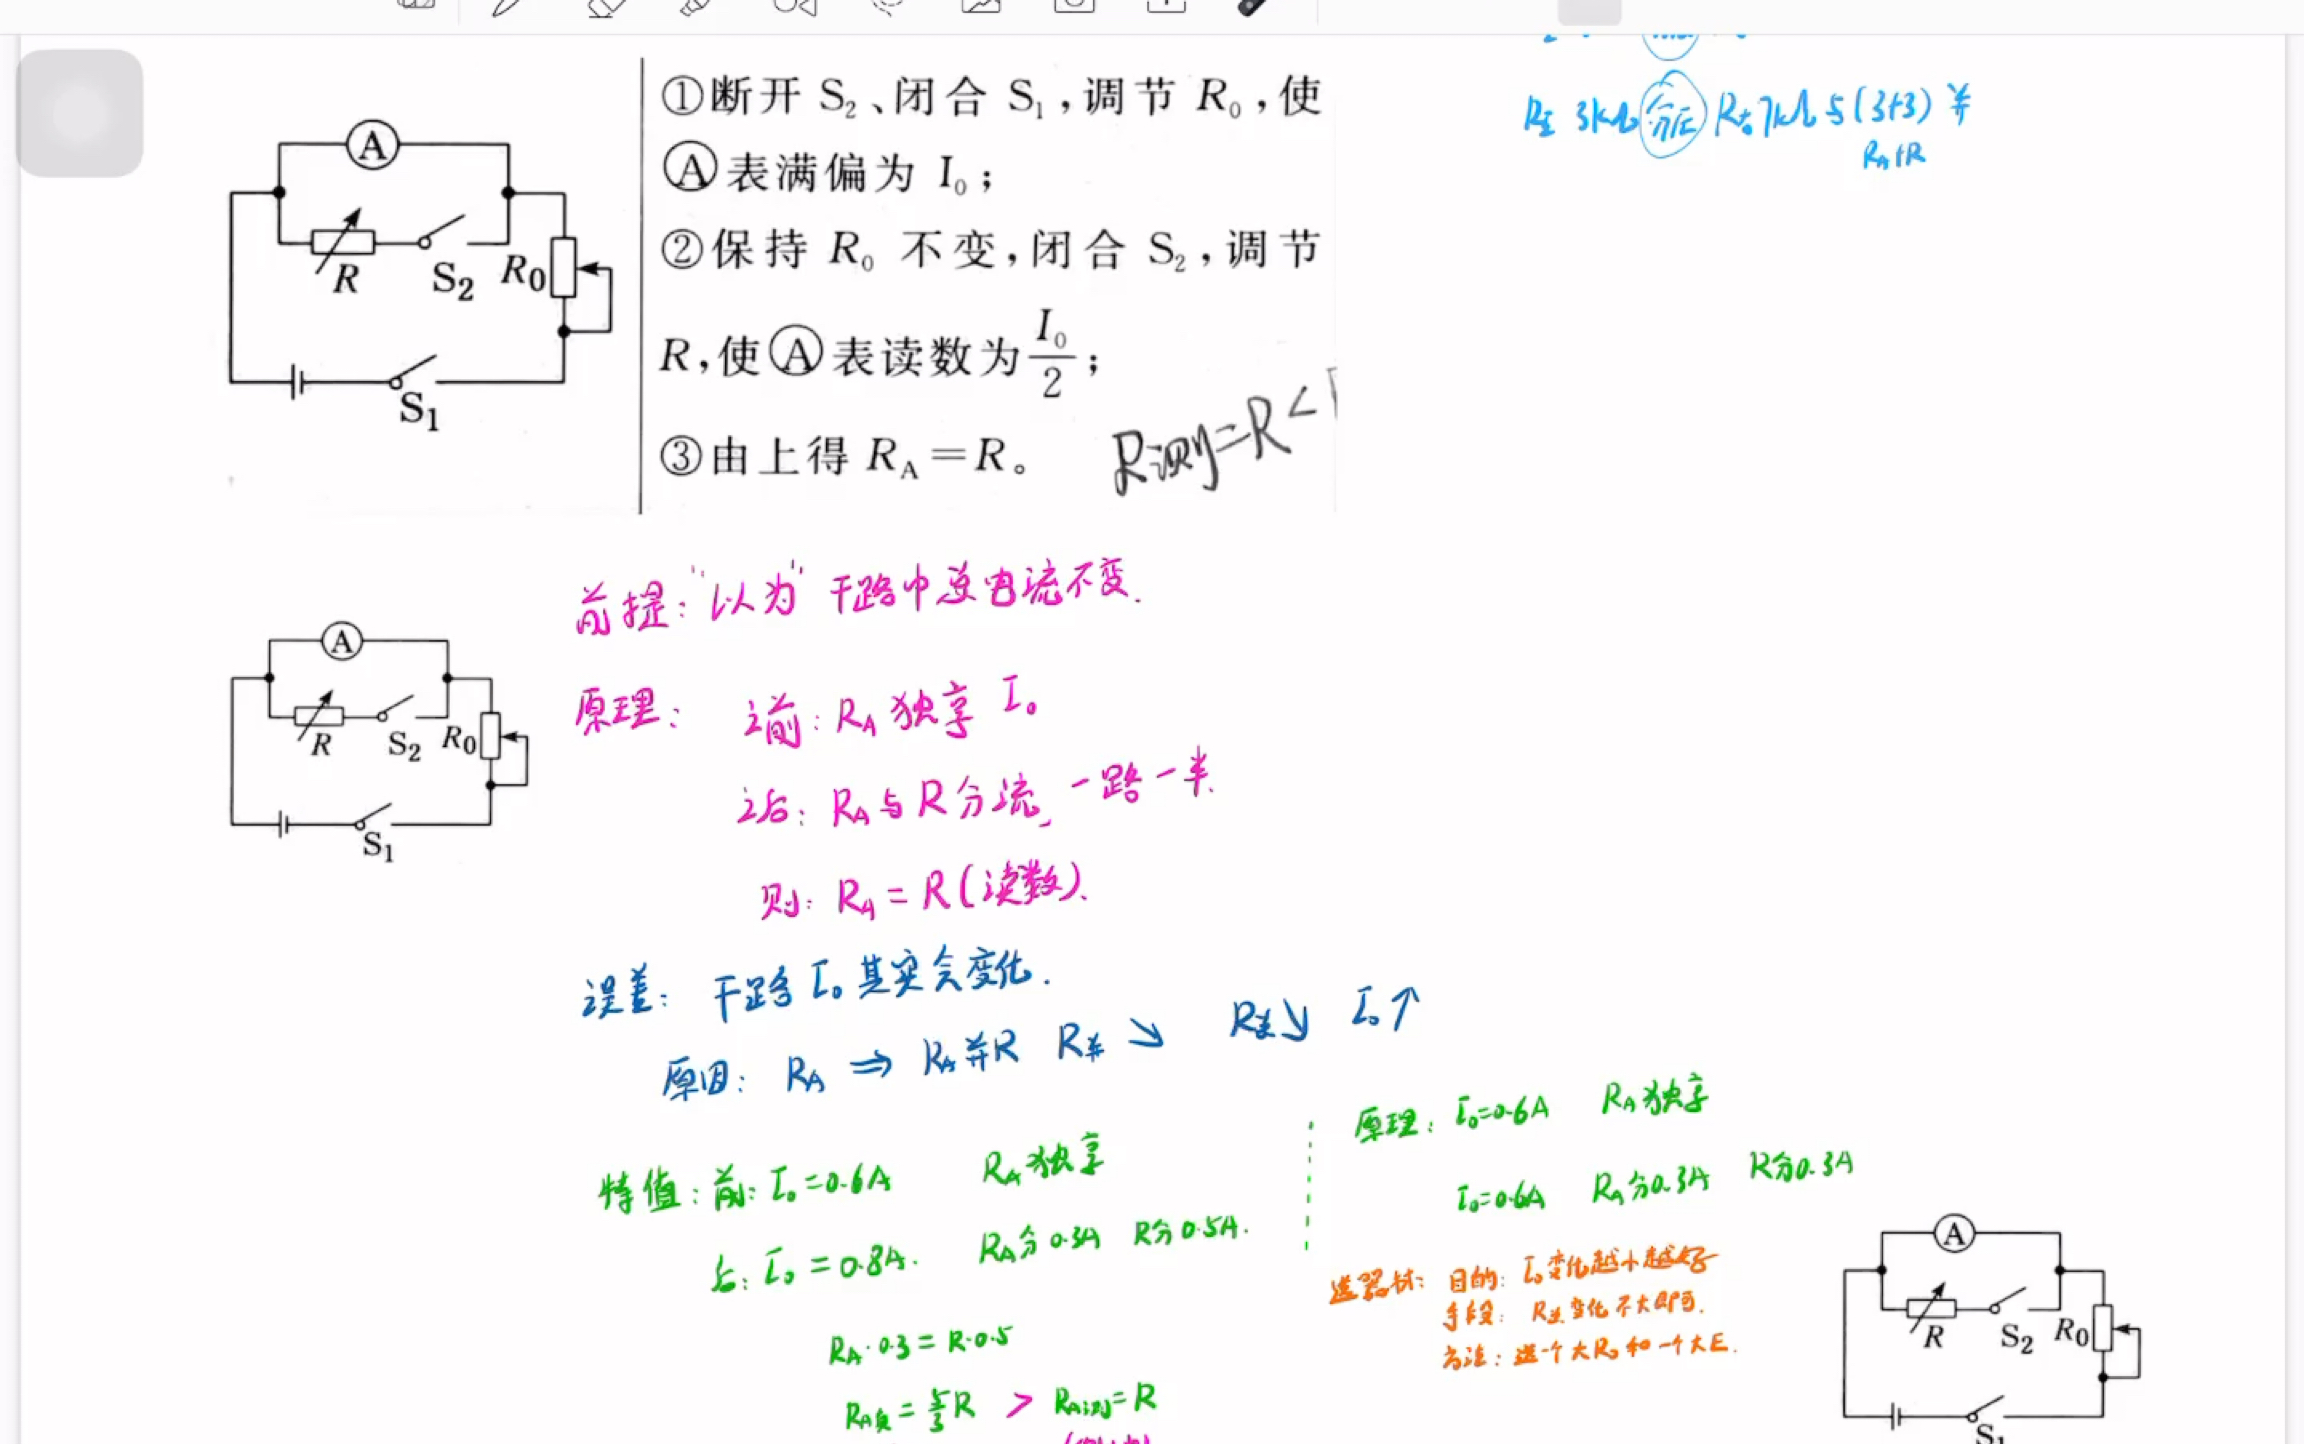 R 3kΩ 分压 R 7kΩ 与(3+3)并
R_A+R
①断开 S₂、闭合 S₁,调节 R₀,使
Ⓐ表满偏为 I₀;
②保持 R₀ 不变,闭合 S₂,调节
R,使Ⓐ表读数为 I₀/2;
③由上得 R_A=R。
R测=R<
A
R
S₂
R₀
S₁
前提:"以为"干路中总电流不变.
原理: 之前:R_A 独享 I₀
之后:R_A与R分流,一路一半.
则:R_A=R(读数).
A
R
S₂
R₀
S₁
误差: 干路I₀其实会变化.
原因: R_A ⇒ R_A并R R并↘ R总↘ I₀↑
特值:前:I₀=0.6A R_A独享
后:I₀=0.8A. R_A分0.3A R分0.5A.
R_A·0.3=R·0.5
R_A真=5/3R > R_A测=R
原理:I₀=0.6A R_A独享
I₀=0.6A R_A分0.3A R分0.3A
选器材:目的:I₀变化越小越好
手段:R总变化不大即可.
方法:选一个大R₀和一个大E.
A
R
S₂
R₀
S₁